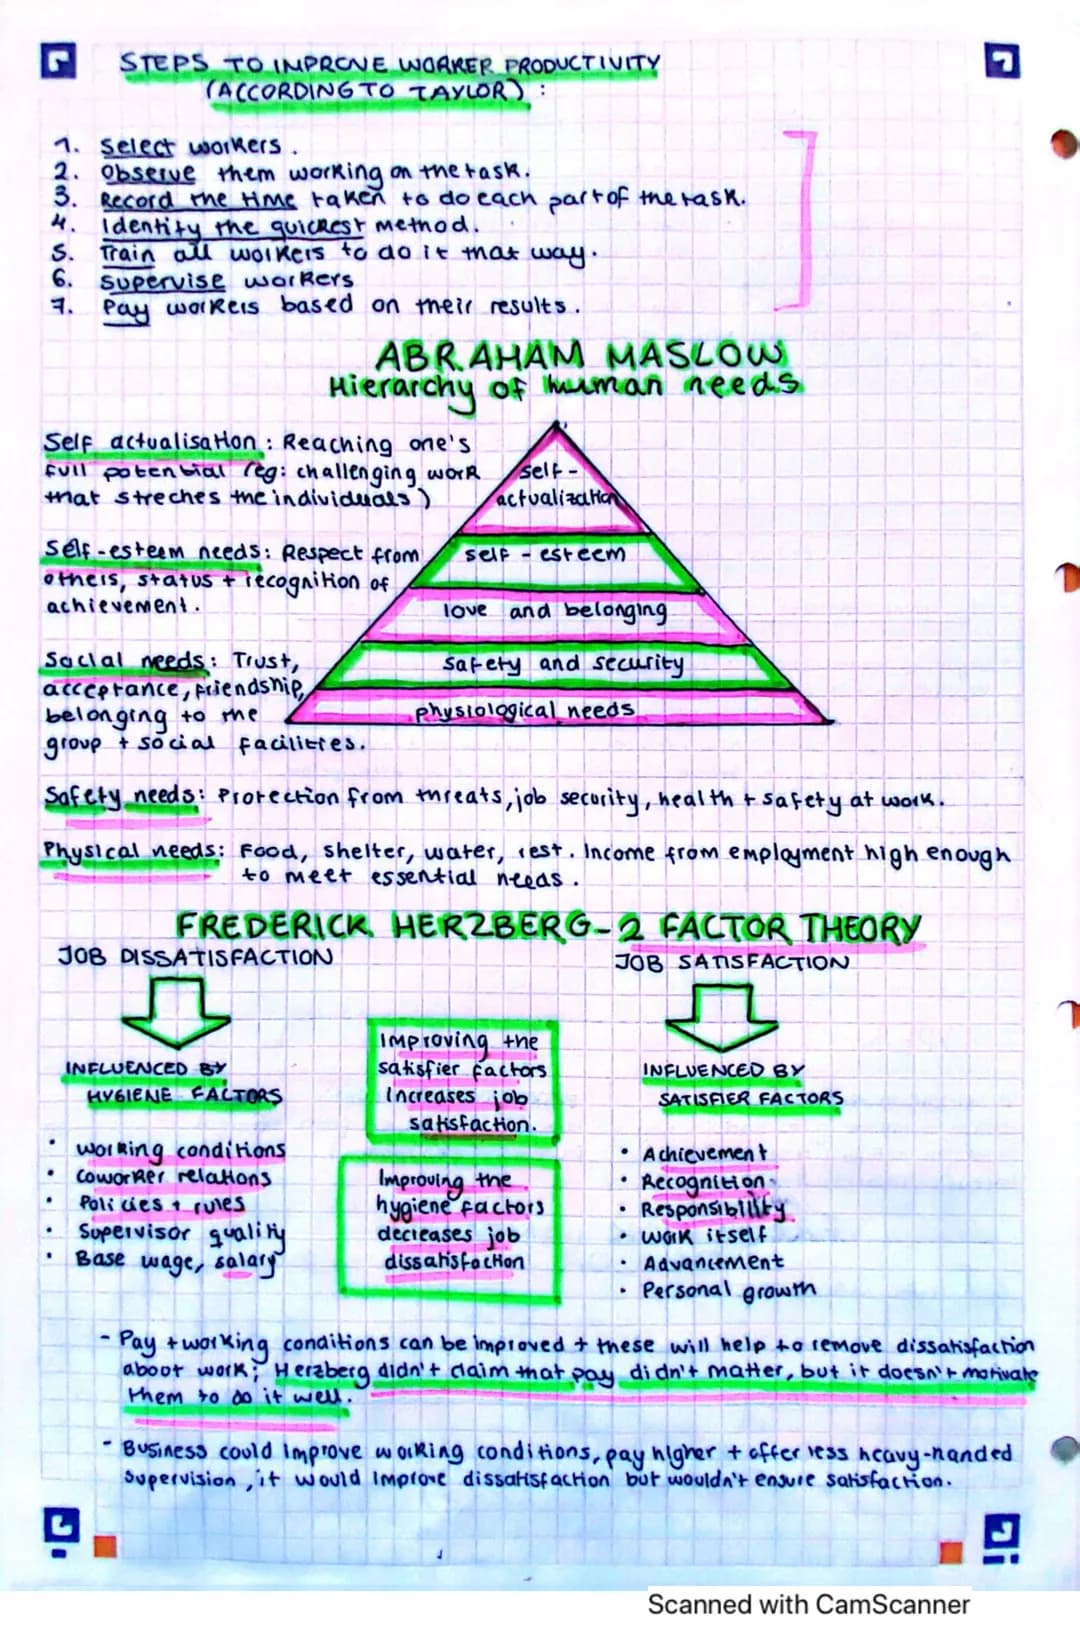 STEPS TO IMPROVE WORKER PRODUCTIVITY
(ACCORDING TO TAYLOR) :
1. Select workers.
2. Observe them working on the task.
3. Record the time taken to do each part of the task.
4. Identity the quickest method.
5. Train all workers to do it that way.
6. Supervise workers
7. Pay workers based on their results.
ABRAHAM MASLOW
Hierarchy of human needs
Self actualisation : Reaching one's
full potential (eg: challenging work
that streches the individuals)
Self-esteem needs: Respect from
others, status + recognition of
achievement.
Social needs: Trust,
acceptance, friendship,
belonging to the
group + social facilities.
self-
actualization
self-esteem
love and belonging
safety and security
physiological needs
Safety needs: Protection from threats, job security, health + safety at work.
Physical needs: Food, shelter, water, rest. Income from employment high enough
to meet essential needs.
FREDERICK HERZBERG-2 FACTOR THEORY
JOB DISSATISFACTION
INFLUENCED BY
HYGIENE FACTORS
• working conditions
• Coworker relations
• Policies + rules
• Supervisor quality
• Base wage, salary
Improving the
satisfier factors
Increases job
satisfaction.
Improving the
hygiene factors
decreases job
dissatisfaction
JOB SATISFACTION
INFLUENCED BY
SATISFIER FACTORS
• Achievement
• Recognition
• Responsibility
• work itself
• Advancement
• Personal growth
- Pay + working conditions can be improved + these will help to remove dissatisfaction
about work; Herzberg didn't claim that pay didn't matter, but it doesn't motivate
them to do it well.
- Business could improve working conditions, pay higher + offer less heavy-handed
Supervision, it would improve dissatisfaction but wouldn't ensure satisfaction.
Scanned with CamScanner